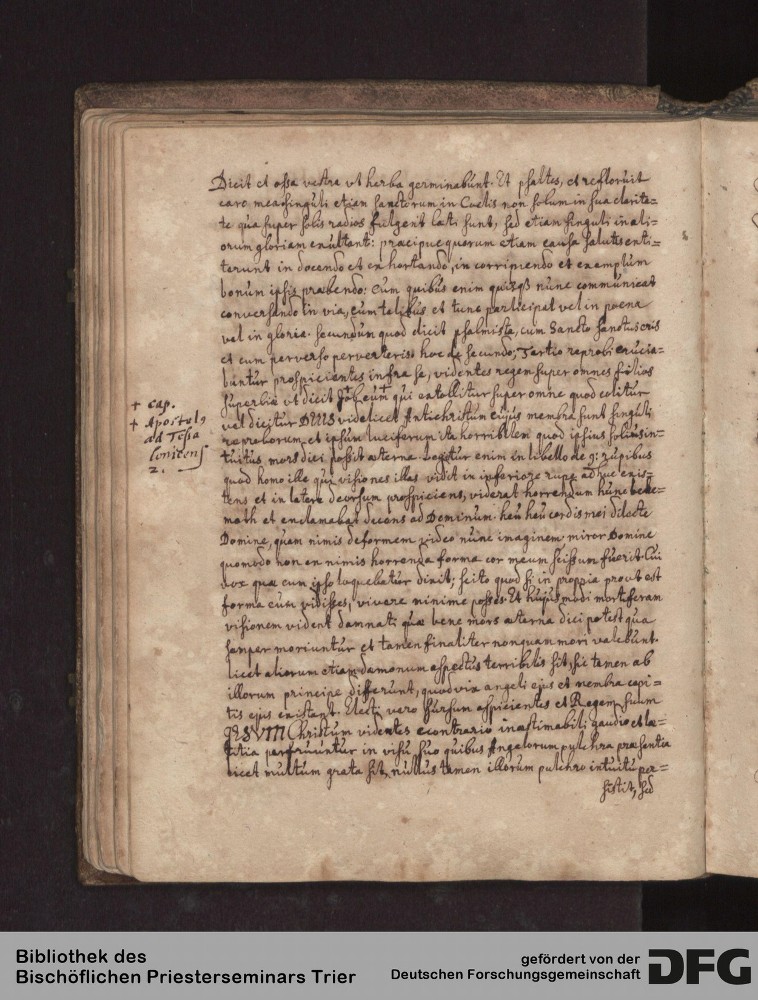 Dicit et ossa vestra vt herba germinabunt. Et psaltes, et refloruit
caro mea singuli etiam sanctorum in Caelis non solum in sua clarita=
te qua super solis radios fulgent lati sunt, sed etiam singuli in ali=
orum gloriam exultant: praecipue quorum etiam causa salutis exti=
terunt in docendo et exhortando, in corripiendo et exemplum
bonum ipsis praebendo: Cum quibus enim quisq3 nunc communicat
conversando in via, cum talibus et tunc participat vel in poena
vel in gloria. secundum quod dicit psalmista, cum Sancto sanctus eris
et cum perverso perverteris: hoc de secundo; Tertio reprobi crucia=
buntur prospicientes infra se, videntes regem super omnes filios
superbiae vt dicit Job, eum qui extollitur super omne quod colitur
vel dicitur DEUS videlicet Antichristum cujus membra sunt singuli
reproborum et ipsum luciferum ita horribilem quod ipsius solius in=
tuitus mors dici possit aeterna. Legitur enim in libello de 9: rupibus
quod homo ille qui visiones illas vidit in inferiore rupe adhuc exis=
tens et in latere deorsum prospiciens, viderat horrendum hunc behe=
moth et exclamabat decens ad Dominum. heu heu cordis mei dilecte
Domine, quam nimis deformem video nunc imaginem miror Domine
quomodo non ex nimis horrenda forma cor meum scissum fuerit. Cui
vox quae cum ipso loquebatur dixit; scito quod si in propria prout est
forma eum vidisses, vivere minime posses. Et hujusmodi mortiferam
visionem vident damnati quae bene mors aeterna dici potest qua
semper moriuntur et tamen finaliter nonquam mori valebunt.
licet aliorum etiam daemonum aspectus terribilis sit, sic tamen ab
illorum principe differunt, quod vix angeli ejus et membra capi=
tis ejus existant. Electi vero sursum aspicientes et Regem suum
JESVM Christum videntes econtrario inaestimabili gaudio et lae=
titia perfruuntur in visu suo quibus Angelorum pulchra praesentia
licet multum grata sit, nullus tamen illorum pulchro intuitu per=
sistit, sed
+ cap.
+ Apostol9
ad Tessa
lonicens
2.
Bibliothek des
Bischöflichen Priesterseminars Trier
gefördert von der
Deutschen Forschungsgemeinschaft
DFG